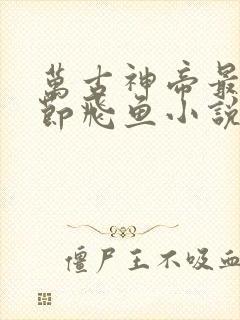 萬古神帝最
節飛魚小說
僵尸王不吸血